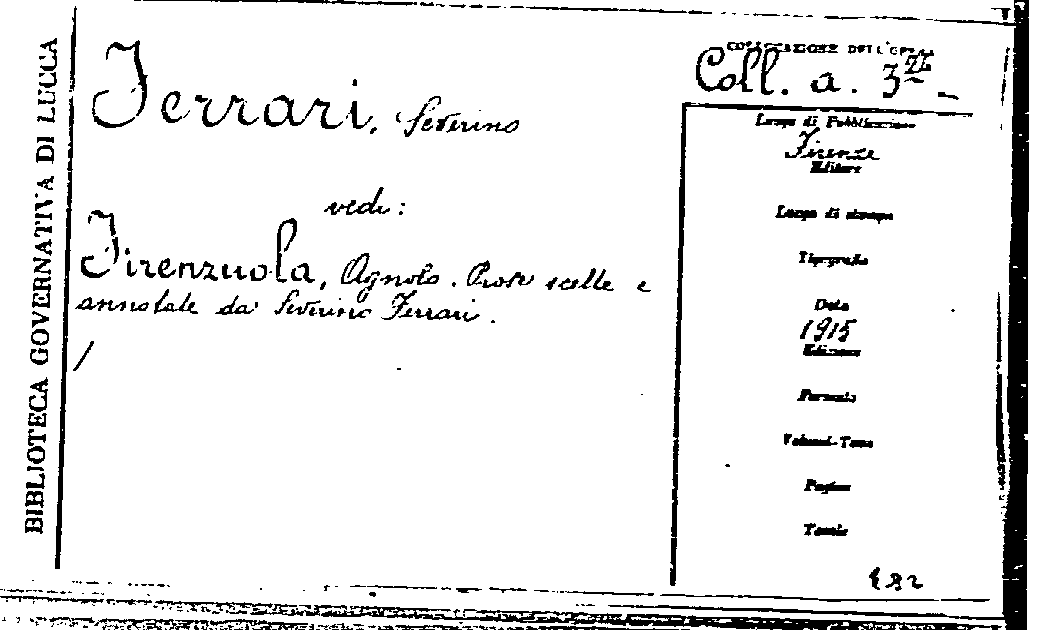 BIBLIOTECA GOVERNATIVA DI LUCCA
Ferrari, Severino
vedi:
Firenzuola, Agnolo. Prose scelte e
annotate da Severino Ferrari.
COLLOCAZIONE DELL'OPERA
Coll. a. 3
Luogo di Pubblicazione
Firenze
Editore
Luogo di stampa
Tipografia
Data
1915
Edizione
Formato
Volumi-Tomo
Pagine
Tavole